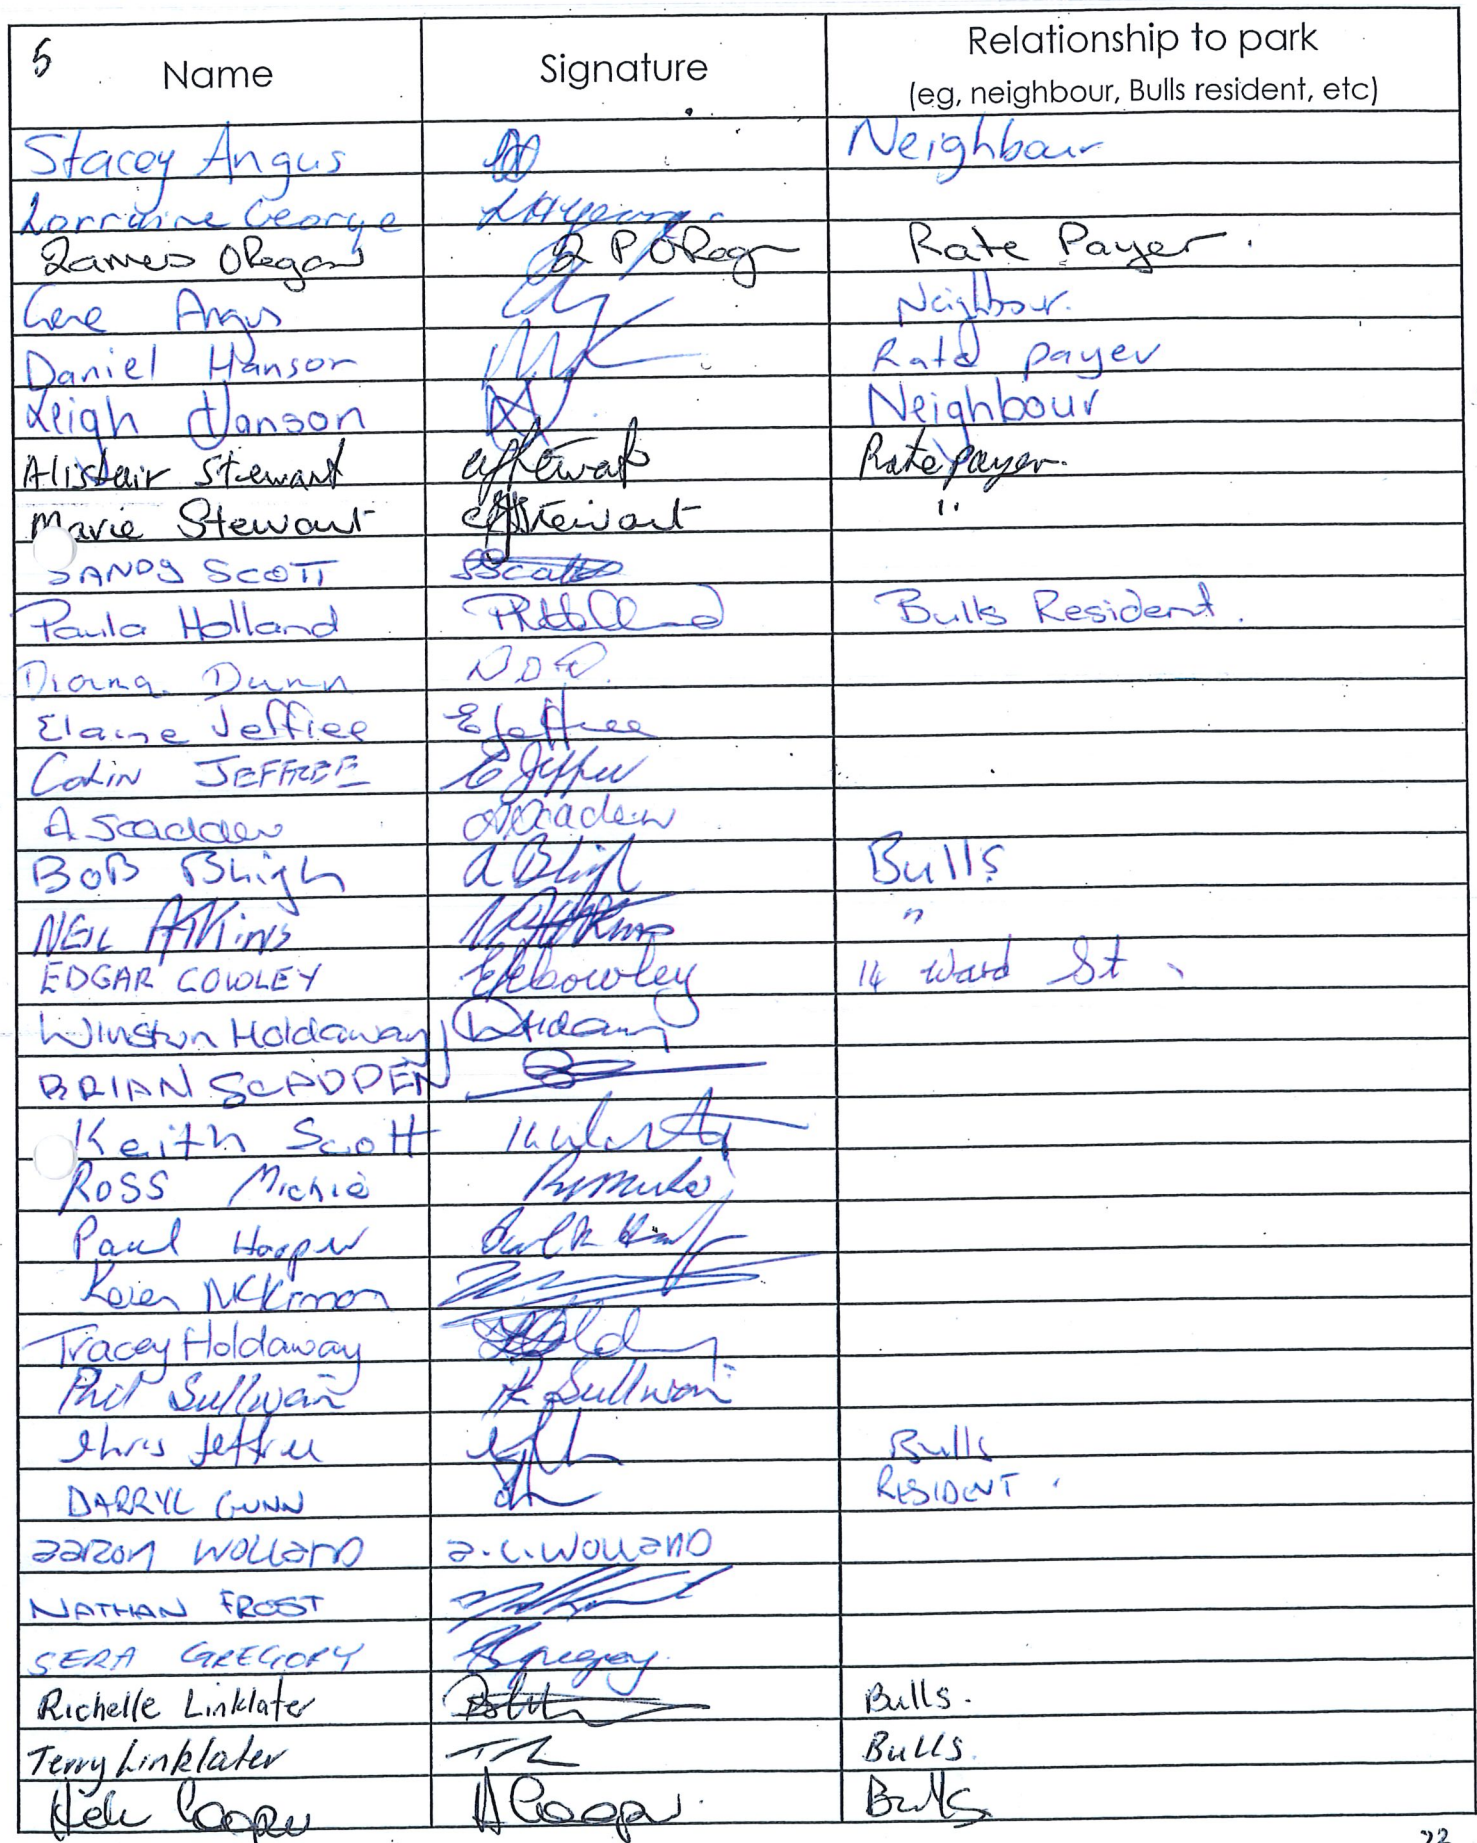 5 Name Signature Relationship to park
(eg, neighbour, Bulls resident, etc)
Stacey Angus Neighbour
Lorraine George
James ORegan J P ORegan Rate Payer.
Gene Angus Neighbour.
Daniel Hanson Rate payer
Leigh Hanson Neighbour
Alistair Stewart Rate payer.
Marie Stewart Stewart "
SANDY SCOTT SScott
Paula Holland PHolland Bulls Resident.
Diana Dunn
Elaine Jeffree EJeffree
COLIN JEFFREE
A Scadden AScadden
BOB Bligh A Bligh Bulls
NEIL ATKINS "
EDGAR COWLEY Cowley 14 Ward St
Winston Holdaway
BRIAN SCADDEN
Keith Scott
ROSS Michie
Paul Hooper
McKinnon
Tracey Holdaway
Phil Sullivan P Sullivan
Chris Jeffree Bulls
DARRYL GUNN RESIDENT.
aaron WOLLanD a.c.WOLLanD
NATHAN FROST
SERA GREGORY SGregory.
Richelle Linklater Bulls.
Terry Linklater TL Bulls.
Cooper H Cooper. Bulls
22